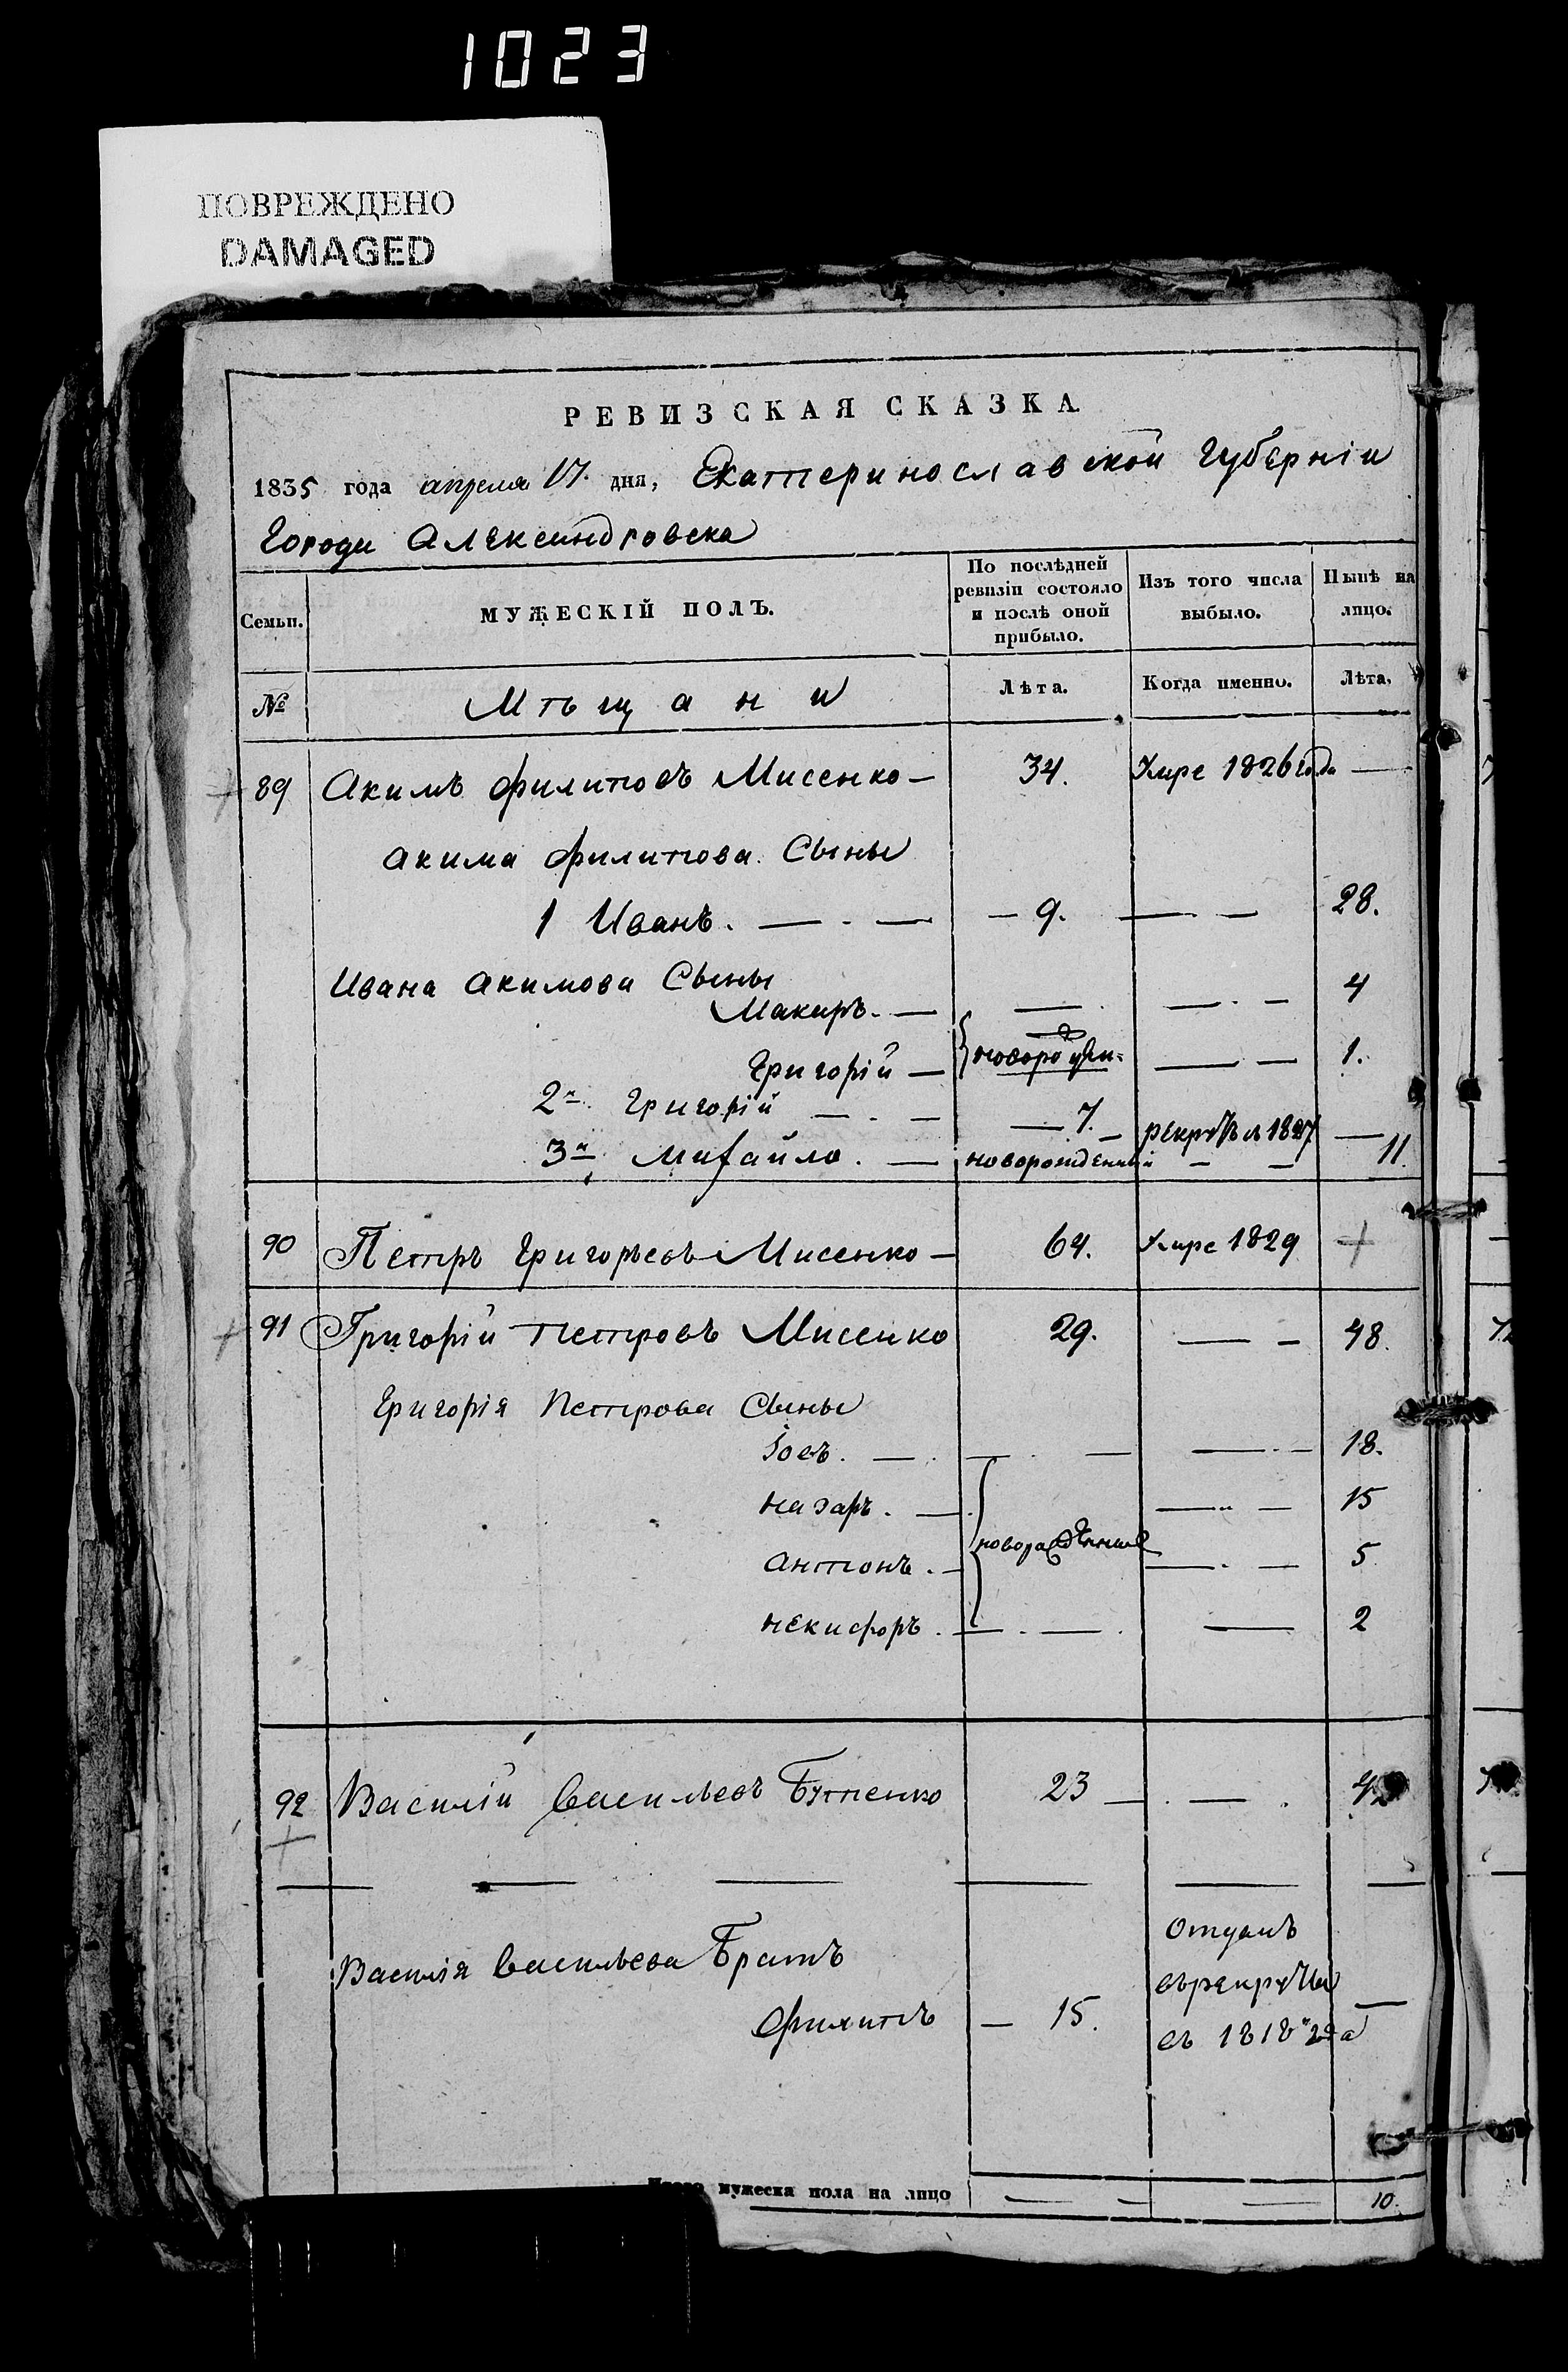 1023
ПОВРЕЖДЕНО
DAMAGED
РЕВИЗСКАЯ СКАЗКА
1835 года апреля 17. дня, Екатеринославской Губернiи
Города Александровска
Семьи. МУЖЕСКIЙ ПОЛЪ. По послѣдней ревизiи состояло и послѣ оной прибыло. Изъ того числа выбыло. Нынѣ на лицо.
№ Мѣщани Лѣта. Когда именно. Лѣта.
89 Акимъ Филиповъ Мисенко — 34. Умре 1826 года —
Акима Филипова Сыны
1 Иванъ. — . — — 9. — . — 28.
Ивана Акимова Сыны
Макаръ. — — . — . — 4
Григорiй — — — 1.
2й. Григорiй — . — — 7. — 1827 —
3й Михайло. — новорожденный — — 11.
90 Петръ Григорьевъ Мисенко — 64. Умре 1829
91 Григорiй Петровъ Мисенко 29. — — 48.
Григорiя Петрова Сыны
Iовъ. — . — . — — . — 18.
Назаръ. — . — . — 15
новоражденные
Антонъ. — — . — 5
Некифоръ. — . — . — 2
92 Василiй Васильевъ Бутенко 23 — . — . 42
Василiя Васильева Братъ
Отданъ
въ рекруты
Филипъ — 15. —
въ 1818м года
мужеска пола на лицо — — — 10.